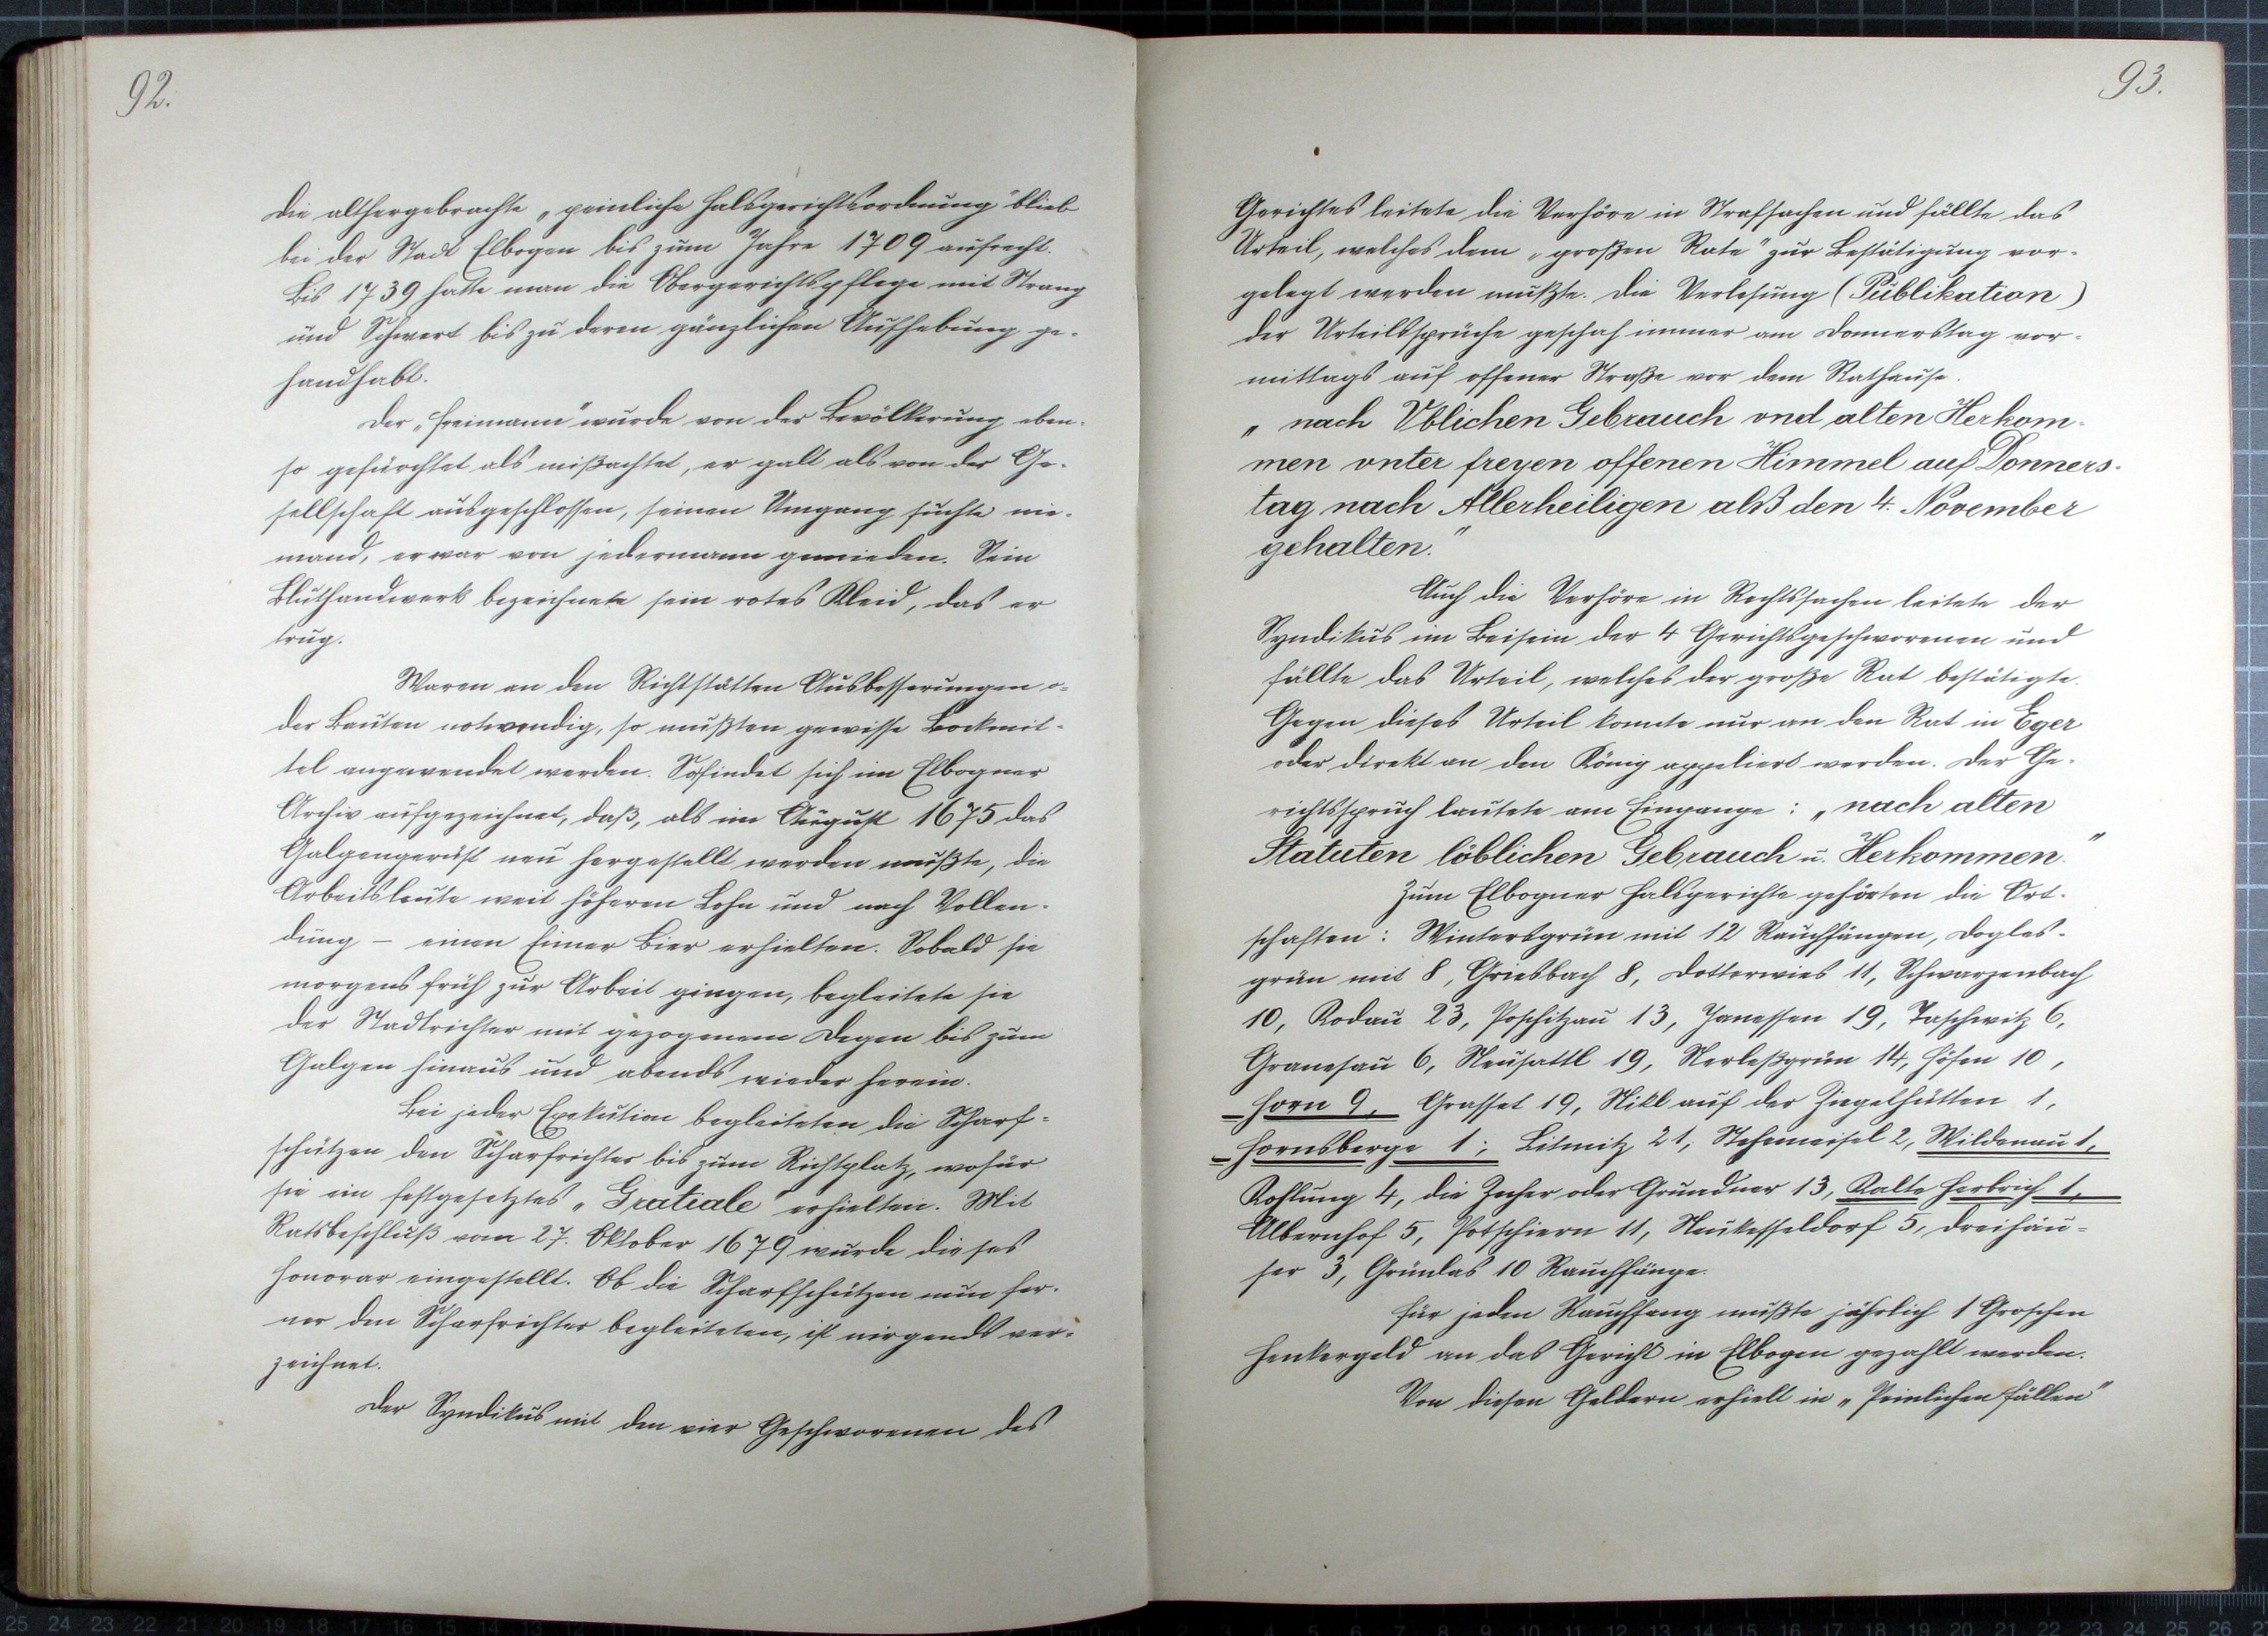 92.
Die althergebrachte „peinliche Halsgerichtsordnung" blieb
bei der Stadt Elbogen bis zum Jahre 1709 aufrecht.
Bis 1739 hatte man die Obergerichtspflege mit Strang
und Schwert bis zu deren gänzlichen Aufhebung ge-
handhabt.
Der „Freimann" wurde von der Bevölkerung eben-
so gefürchtet als mißachtet, er galt als von der Ge-
sellschaft ausgeschlossen, seinen Umgang suchte nie-
mand, er war von jedermann gemieden. Sein
Bluthandwerk bezeichnete sein rotes Kleid, das er
trug.
Waren an den Richtstätten Ausbesserungen o-
der Bauten notwendig, so mußten gewisse Lockmit-
tel angewendet werden. So findet sich im Elbogner
Archiv aufgezeichnet, daß, als im August 1675 das
Galgengerüst neu hergestellt werden mußte, die
Arbeitsleute weit höheren Lohn und nach Vollen-
dung – einen Eimer Bier erhielten. Sobald sie
morgens früh zur Arbeit gingen, begleitete sie
der Stadtrichter mit gezogenem Degen bis zum
Galgen hinaus und abends wieder herein.
Bei jeder Exekution begleiteten die Scharf-
schützen den Scharfrichter bis zum Richtplatz, wofür
sie ein festgesetztes „Gratiale" erhielten. Mit
Ratsbeschluß vom 27. Oktober 1679 wurde dieses
Honorar eingestellt. Ob die Scharfschützen nun fer-
ner den Scharfrichter begleiteten, ist nirgends ver-
zeichnet.
Der Syndikus mit den vier Geschworenen des
93.
Gerichtes leitete die Verhöre in Strafsachen und fällte das
Urteil, welches dem „großen Rate" zur Bestätigung vor-
gelegt werden mußte. Die Verlesung (Publikation)
der Urteilssprüche geschah immer am Donnerstag vor-
mittags auf offener Straße vor dem Rathause.
„nach Üblichen Gebrauch vnd alten Herkom-
men vnter freyen offenen Himmel auf Donners-
tag nach Allerheiligen alß den 4. November
gehalten."
Auch die Verhöre in Rechtssachen leitete der
Syndikus im Beisein der 4 Gerichtsgeschworenen und
fällte das Urteil, welches der große Rat bestätigte.
Gegen dieses Urteil konnte nur an den Rat in Eger
oder direkt an den König appeliert werden. Der Ge-
richtsspruch lautete am Eingange: „nach alten
Statuten löblichen Gebrauch u. Herkommen."
Zum Elbogner Halsgerichte gehörten die Ort-
schaften: Wintersgrün mit 12 Rauchfängen, Dogles-
grün mit 8, Griesbach 8, Dotterwies 11, Schwarzenbach
10, Kodau 23, Poschitzau 13, Janessen 19, Taschwitz 6,
Granesau 6, Neusattl 19, Nerleßgrün 14, Höfen 10,
Horn 9, Grasset 19, Nikl auf der Ziegelhütten 1,
Hornsberge 1; Litmitz 21, Stehemeisel 2, Wildenau 1,
Kohlung 4, die Zecher oder Grundner 13, Kalte Herbrich 1,
Albernhof 5, Potschiern 11, Neukesseldorf 5, Dreihäu-
ser 3, Gründlas 10 Rauchfänge.
Für jeden Rauchfang mußte jährlich 1 Groschen
Henkergeld an das Gericht in Elbogen gezahlt werden.
Von diesen Geldern erhielt in „Peinlichen Fällen"